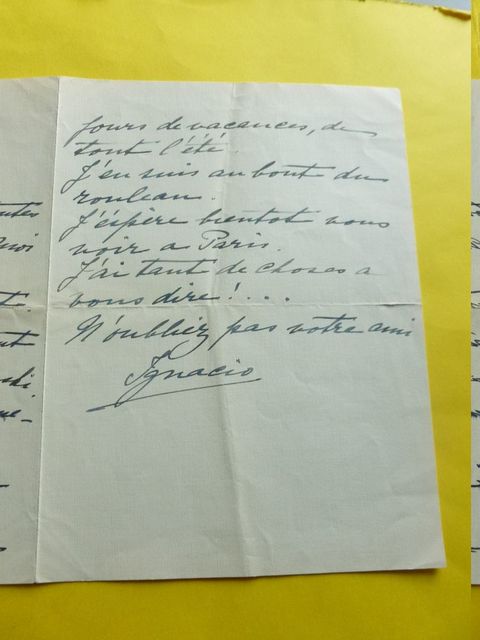 jours de vacances, de
tout l'été.
J'en suis au bout du
rouleau.
J'éspère bientot vous
voir a Paris.
J'ai tant de choses a
vous dire!...
N'oubliez pas votre ami
Ignacio